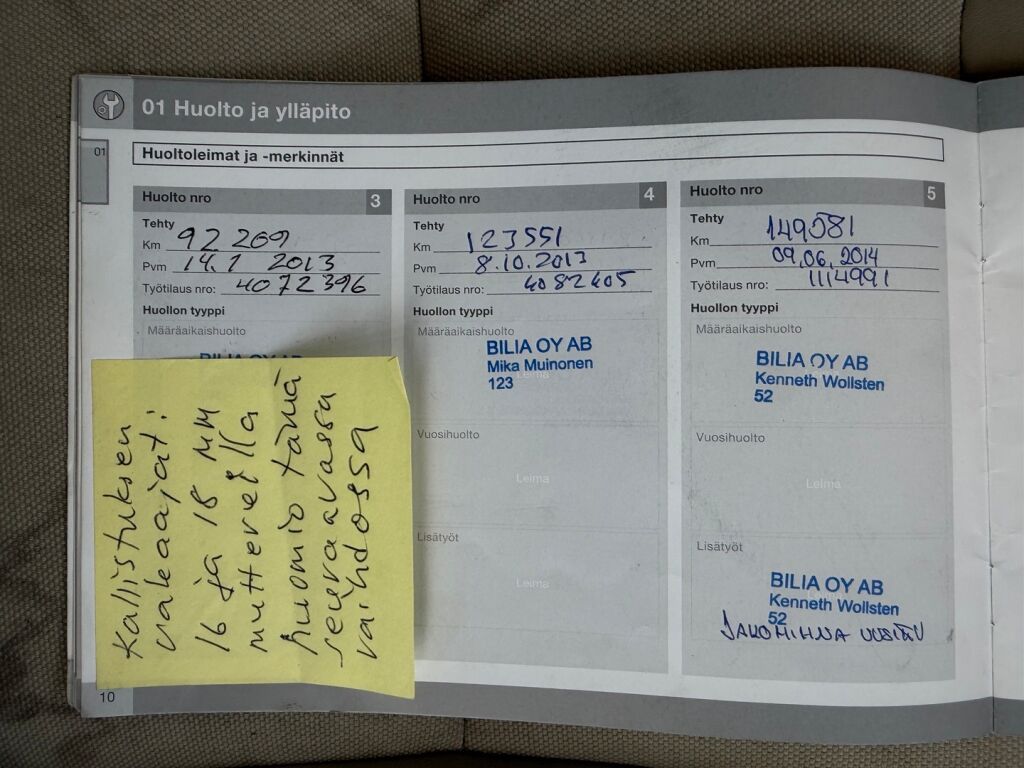 01 Huolto ja ylläpito
01
Huoltoleimat ja -merkinnät
Huolto nro 3
Tehty
Km 92 269
Pvm 14.1 2013
Työtilaus nro: 4072396
Huollon tyyppi
Määräaikaishuolto
BILIA OY AB
Huolto nro 4
Tehty
Km 123551
Pvm 8.10.2013
Työtilaus nro: 4082405
Huollon tyyppi
Määräaikaishuolto
BILIA OY AB
Mika Muinonen
123
Leima
Vuosihuolto
Leima
Lisätyöt
Leima
Huolto nro 5
Tehty
Km 149581
Pvm 09.06.2014
Työtilaus nro: 1114991
Huollon tyyppi
Määräaikaishuolto
BILIA OY AB
Kenneth Wollsten
52
Vuosihuolto
Leima
Lisätyöt
BILIA OY AB
Kenneth Wollsten
52
JAKOHIHNA UUSITTU
Kallistuksen
vakaajat:
16 ja 18 MM
muttereilla
huomio tämä
seuraavassa
vaihdossa
10